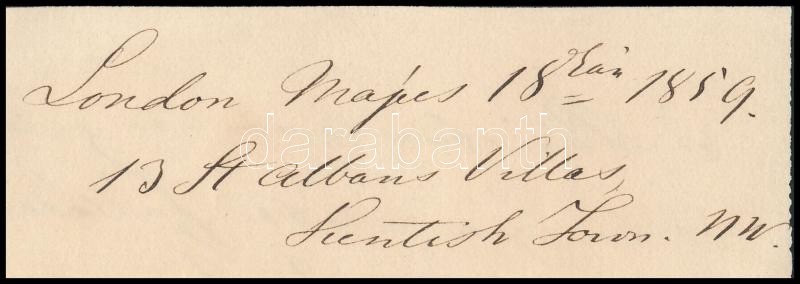 London Majus 18kán 1859.
13 St Albans Villas,
Kentish Town. NW.
darabanth